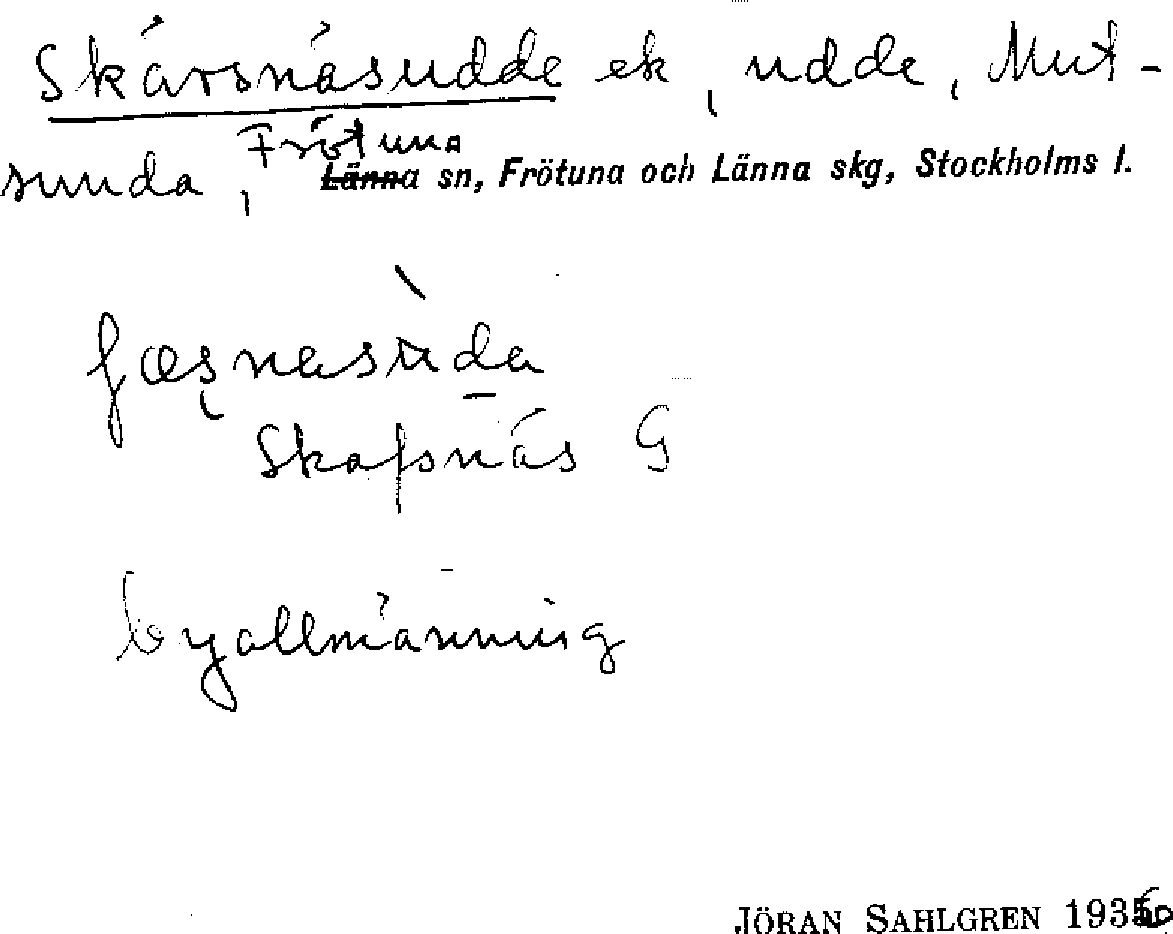 Skärsnäsudde ek, udde, Mut-
sunda, Frötuna Länna sn, Frötuna och Länna skg, Stockholms l.
Skafsnäs G
byallmänning
JÖRAN SAHLGREN 1936